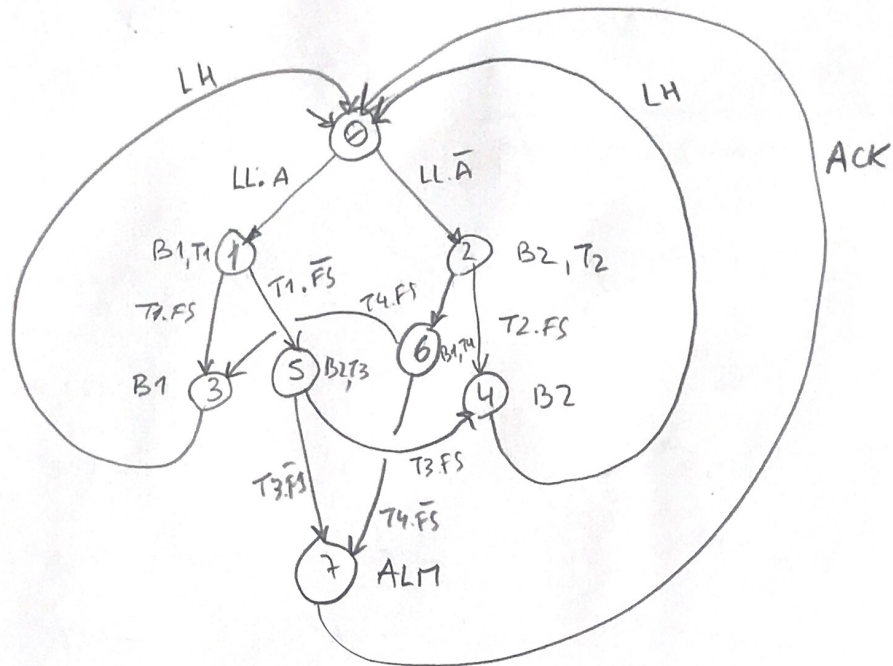 LH
0
LH
ACK
LL.A
LL.A̅
B1,T1
1
2
B2,T2
T1.F̅S̅
T4.FS
T1.FS
T2.FS
6
B1,T4
5
B2,T3
B1
3
4
B2
T3.FS
T3.F̅S̅
T4.F̅S̅
7
ALM